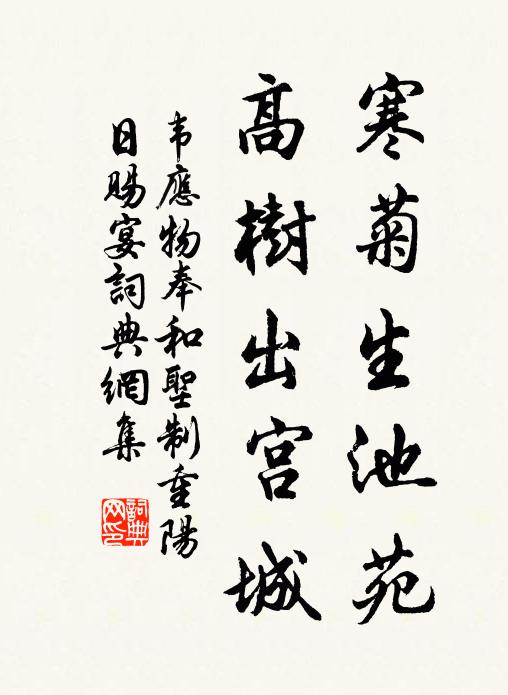 寒菊生池苑
高樹出宮城
韦應物奉和聖制重陽
日賜宴詞典網集
詞典
网印